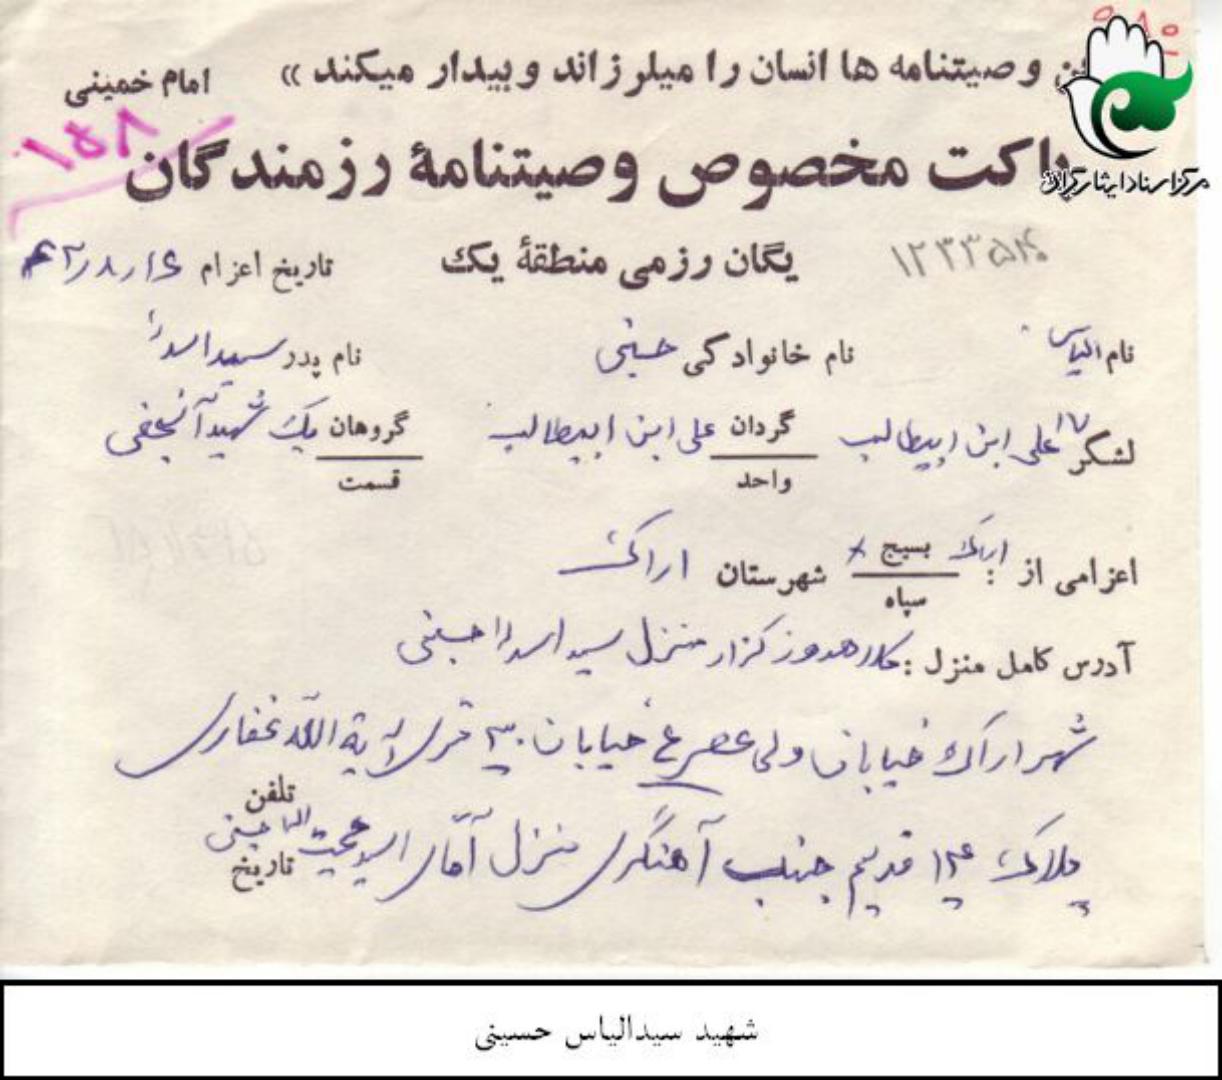 ن وصیتنامه ها انسان را میلرزاند و بیدار میکند »
امام خمینی
۱۵۸
پاکت مخصوص وصیتنامهٔ رزمندگان
مرکز اسناد ایثارگران
۱۲۳۳۵۱۴ یگان رزمی منطقهٔ یک تاریخ اعزام ۱۶ر۸ر۶۲
نام الیاس نام خانوادگی حسینی نام پدر سیداسدا
لشکر ۱۷ علی ابن ابیطالب گردان علی ابن ابیطالب گروهان یک شهید آ نجفی
واحد قسمت
اعزامی از : اراک بسیج × شهرستان اراک
سپاه
آدرس کامل منزل : منزل سید اسدا حسینی
شهر اراک خیابان ولی عصر ع خیابان ۳۰ متری آیة الله غفاری
پلاک ۱۲۴ قدیم جنب آهنگری منزل آقای سید حجت اله حسینی
تلفن
تاریخ
شهید سیدالیاس حسینی